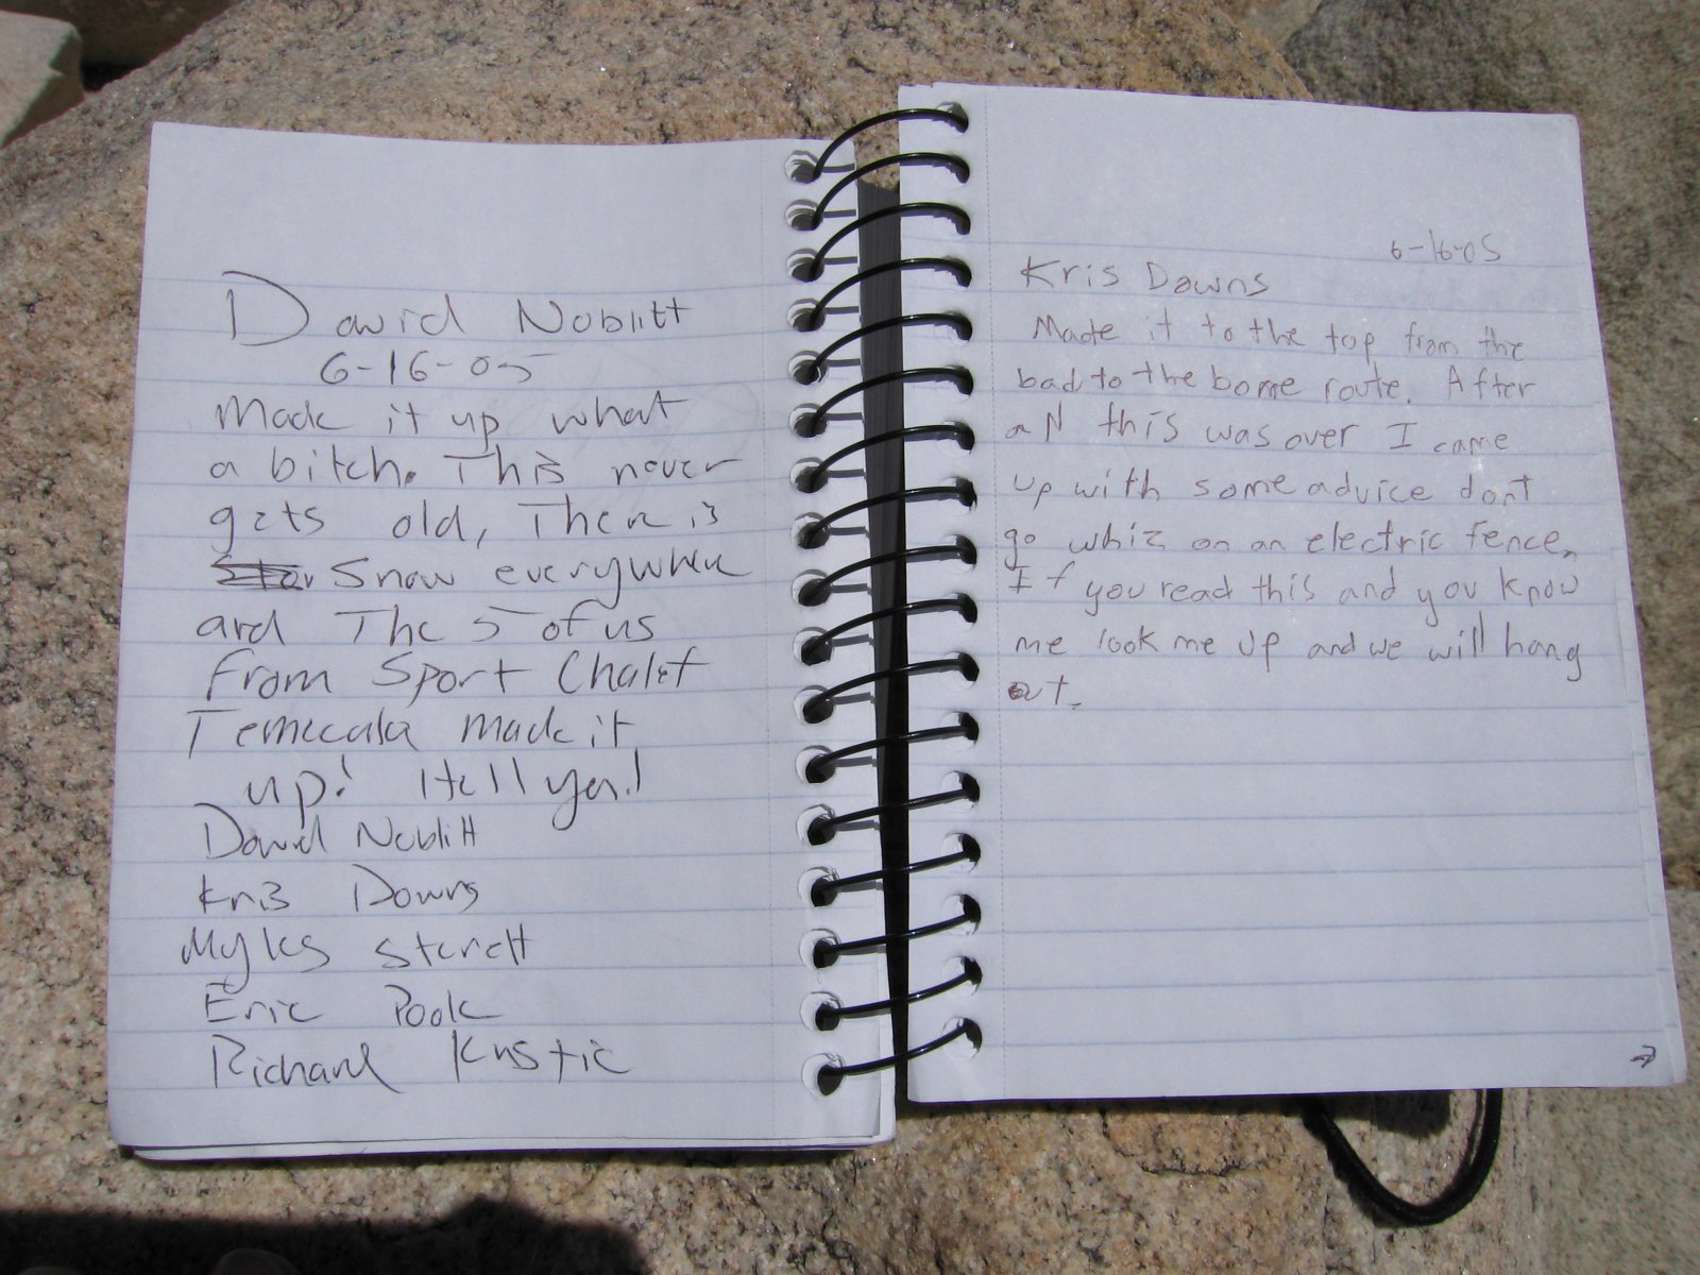 David Noblitt
6-16-05
Made it up what
a bitch. This never
gets old, There is
Snow everywhere
and The 5 of us
from Sport Chalet
Temecula made it
up! Hell yea!
David Noblitt
Kris Downs
Myles Sterett
Eric Pook
Richard Kristic
6-16-05
Kris Downs
Made it to the top from the
bad to the bome route. After
all this was over I came
up with some advice dont
go whiz on an electric fence.
If you read this and you know
me look me up and we will hang
out.